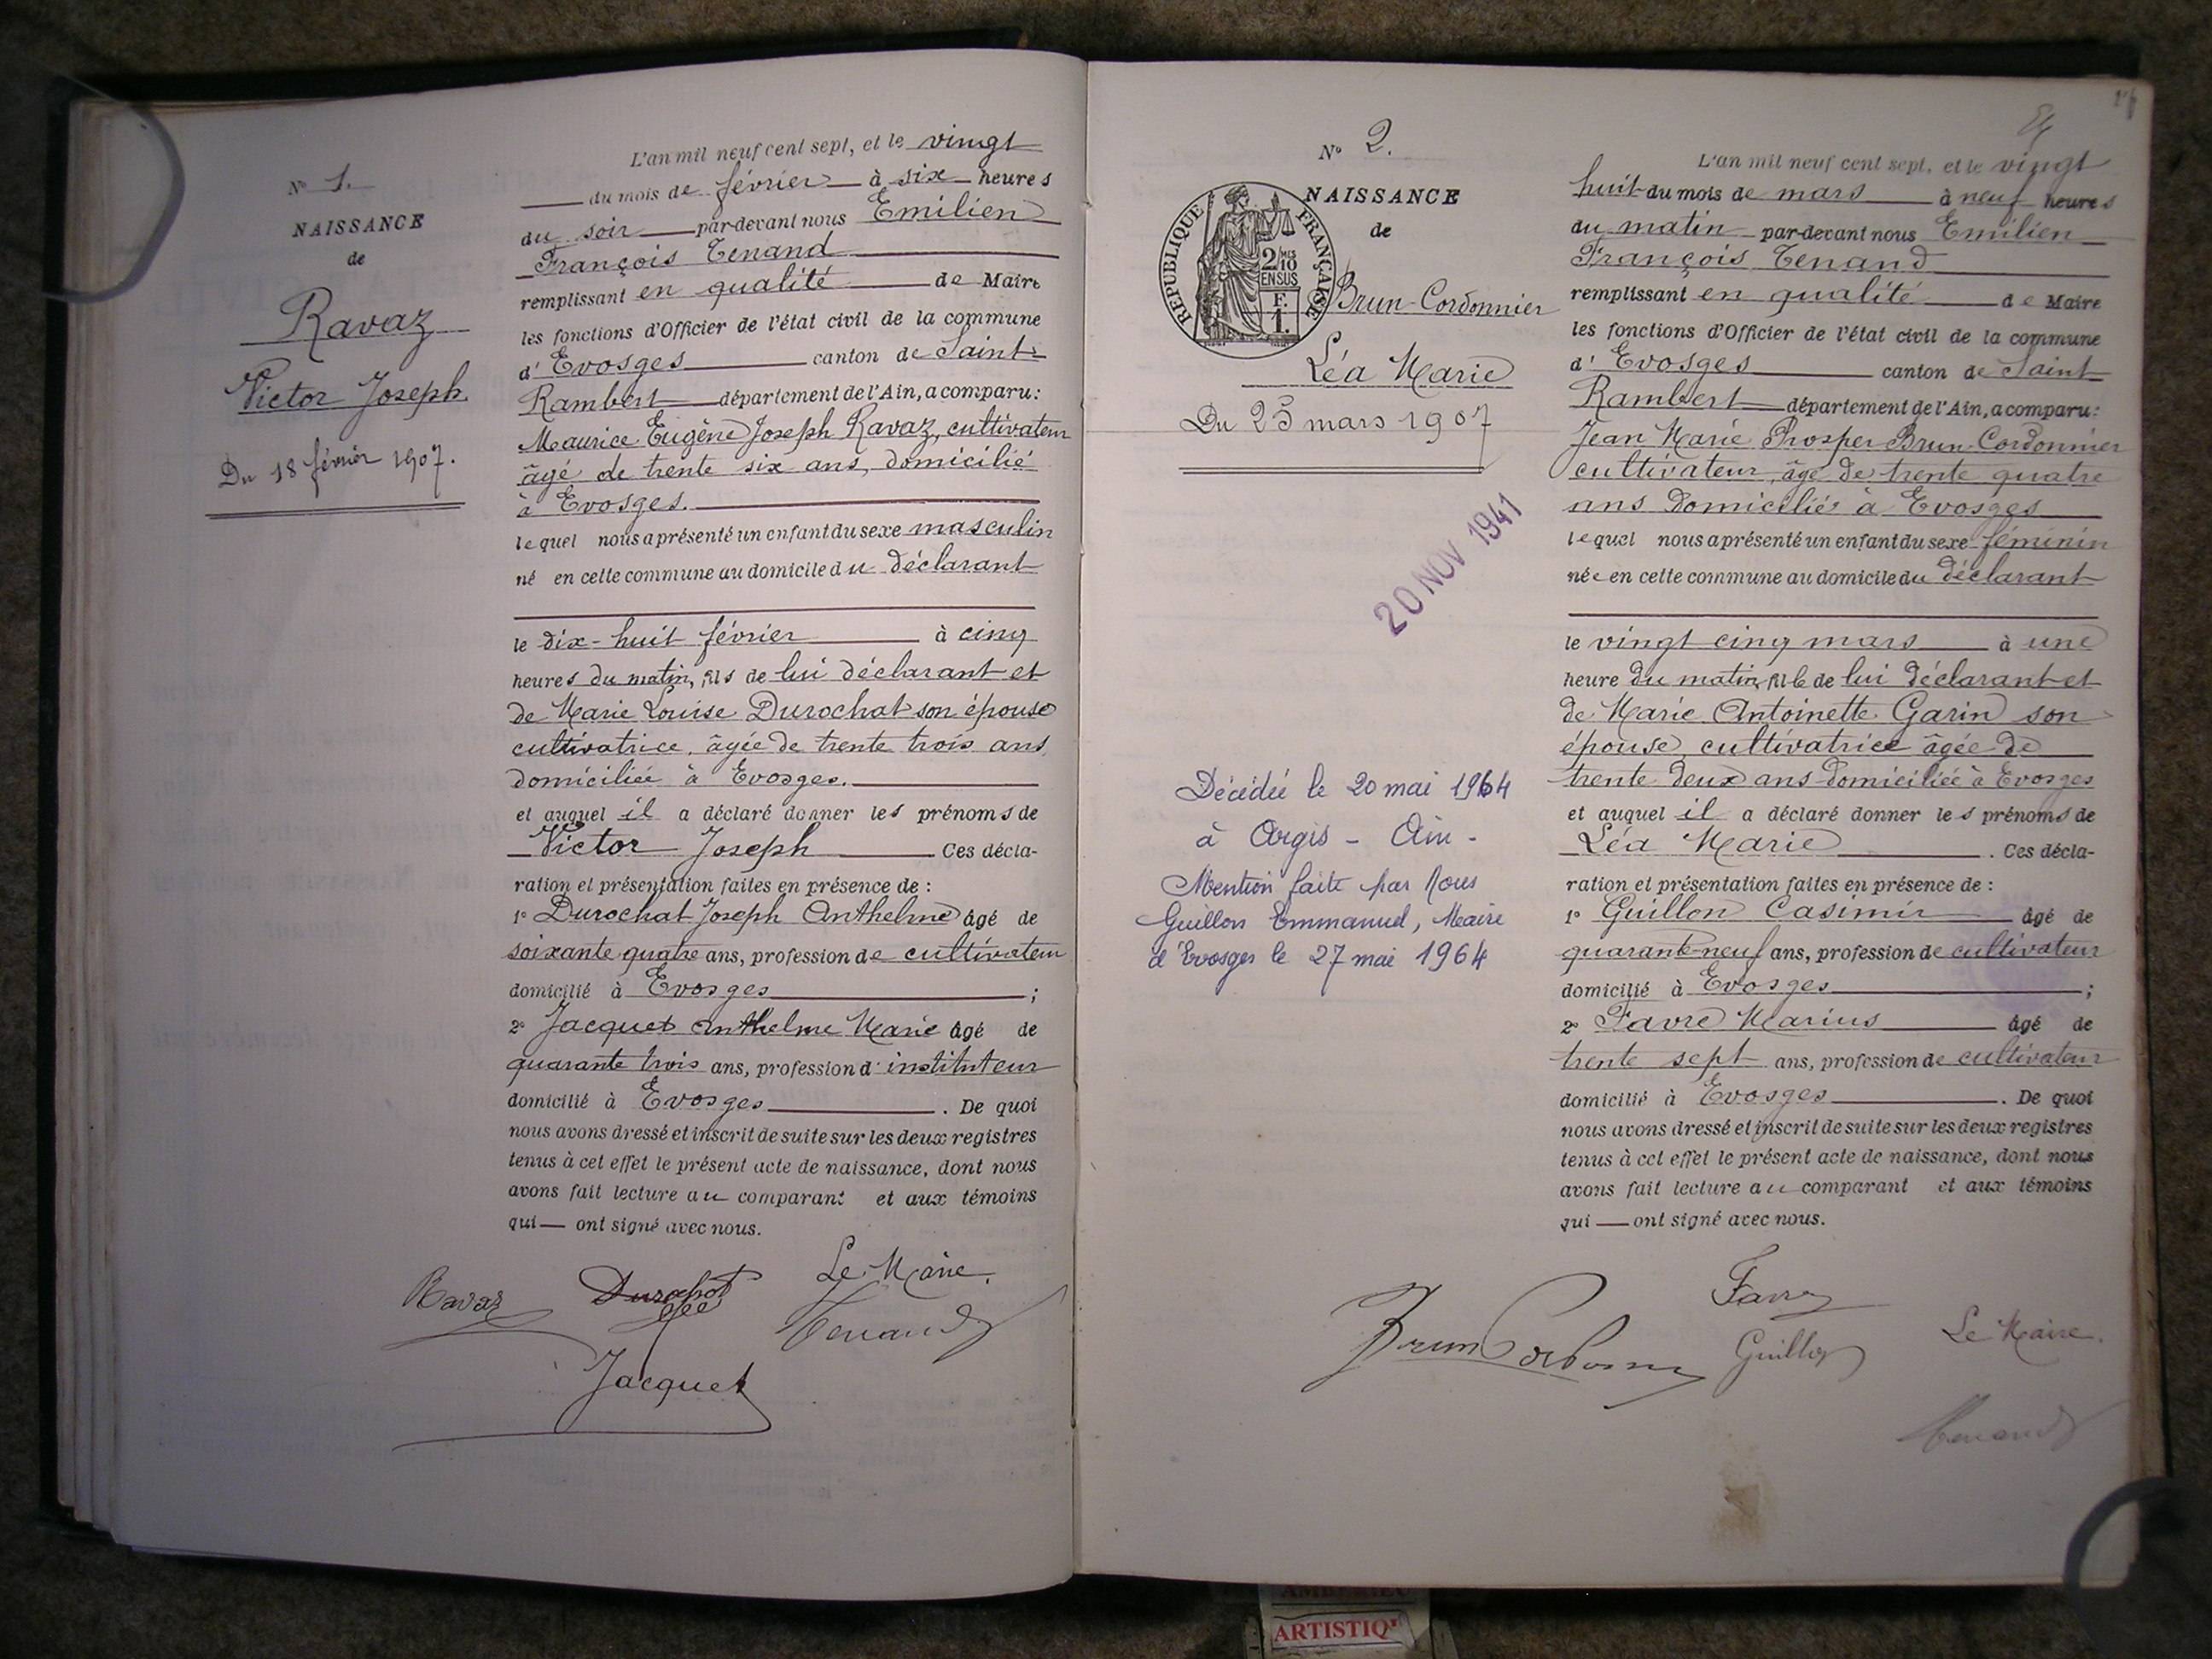 N° 1.
NAISSANCE
de
Ravaz
Victor Joseph.
Du 18 février 1907.
L'an mil neuf cent sept, et le vingt
du mois de février à six heures
du soir par-devant nous Emilien
François Tenand
remplissant en qualité de Maire
les fonctions d'Officier de l'état civil de la commune
d' Evosges canton de Saint-
Rambert département de l'Ain, a comparu:
Maurice Eugène Joseph Ravaz, cultivateur
âgé de trente six ans, domicilié
à Evosges.
lequel nous a présenté un enfant du sexe masculin
né en cette commune au domicile du déclarant
le dix-huit février à cinq
heures du matin, fils de lui déclarant et
de Marie Louise Durochat son épouse
cultivatrice, âgée de trente trois ans,
domiciliée à Evosges.
et auquel il a déclaré donner les prénoms de
Victor Joseph Ces décla-
ration et présentation faites en présence de :
1° Durochat Joseph Anthelme âgé de
soixante quatre ans, profession de cultivateur
domicilié à Evosges ;
2° Jacquet Anthelme Marie âgé de
quarante trois ans, profession d' instituteur
domicilié à Evosges . De quoi
nous avons dressé et inscrit de suite sur les deux registres
tenus à cet effet le présent acte de naissance, dont nous
avons fait lecture au comparant et aux témoins
qui ont signé avec nous.
Ravaz Durochat Le Maire.
Tenand
Jacquet
N° 2.
NAISSANCE
de
REPUBLIQUE FRANÇAISE
2/10 MES
EN SUS
F.
1.
Brun-Cordonnier
Léa Marie
Du 25 mars 1907
20 NOV 1941
Décédée le 20 mai 1964
à Argis - Ain -
Mention faite par Nous
Guillon Emmanuel, Maire
d'Evosges le 27 mai 1964
L'an mil neuf cent sept, et le vingt
huit du mois de mars à neuf heures
du matin par-devant nous Emilien
François Tenand
remplissant en qualité de Maire
les fonctions d'Officier de l'état civil de la commune
d' Evosges canton de Saint
Rambert département de l'Ain, a comparu:
Jean Marie Prosper Brun-Cordonnier
cultivateur, âgé de trente quatre
ans domicilié à Evosges
lequel nous a présenté un enfant du sexe féminin
née en cette commune au domicile du déclarant
le vingt cinq mars à une
heure du matin, fille de lui déclarant et
de Marie Antoinette Garin son
épouse, cultivatrice âgée de
trente deux ans domiciliée à Evosges
et auquel il a déclaré donner les prénoms de
Léa Marie . Ces décla-
ration et présentation faites en présence de :
1° Guillon Casimir âgé de
quarante-neuf ans, profession de cultivateur
domicilié à Evosges ;
2° Favre Marius âgé de
trente sept ans, profession de cultivateur
domicilié à Evosges . De quoi
nous avons dressé et inscrit de suite sur les deux registres
tenus à cet effet le présent acte de naissance, dont nous
avons fait lecture au comparant et aux témoins
qui ont signé avec nous.
Favre
Brun Cordonnier Guillon Le Maire.
Tenand
ARTISTIQ